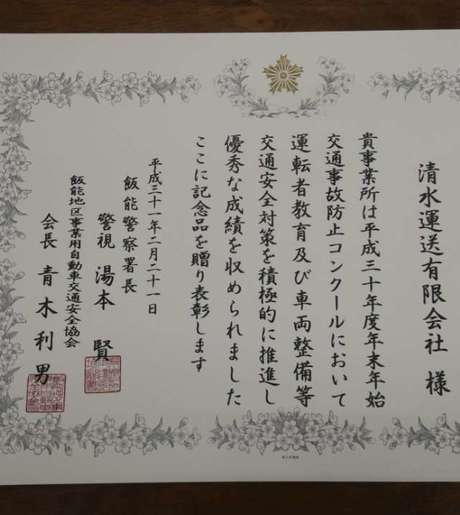 清水運送有限会社 様
貴事業所は平成三十年度年末年始
交通事故防止コンクールにおいて
運転者教育及び車両整備等
交通安全対策を積極的に推進し
優秀な成績を収められました
ここに記念品を贈り表彰します
平成三十一年二月二十一日
飯能警察署長
警視 湯本 賢
飯能地区事業用自動車交通安全協会
会長 青木利男